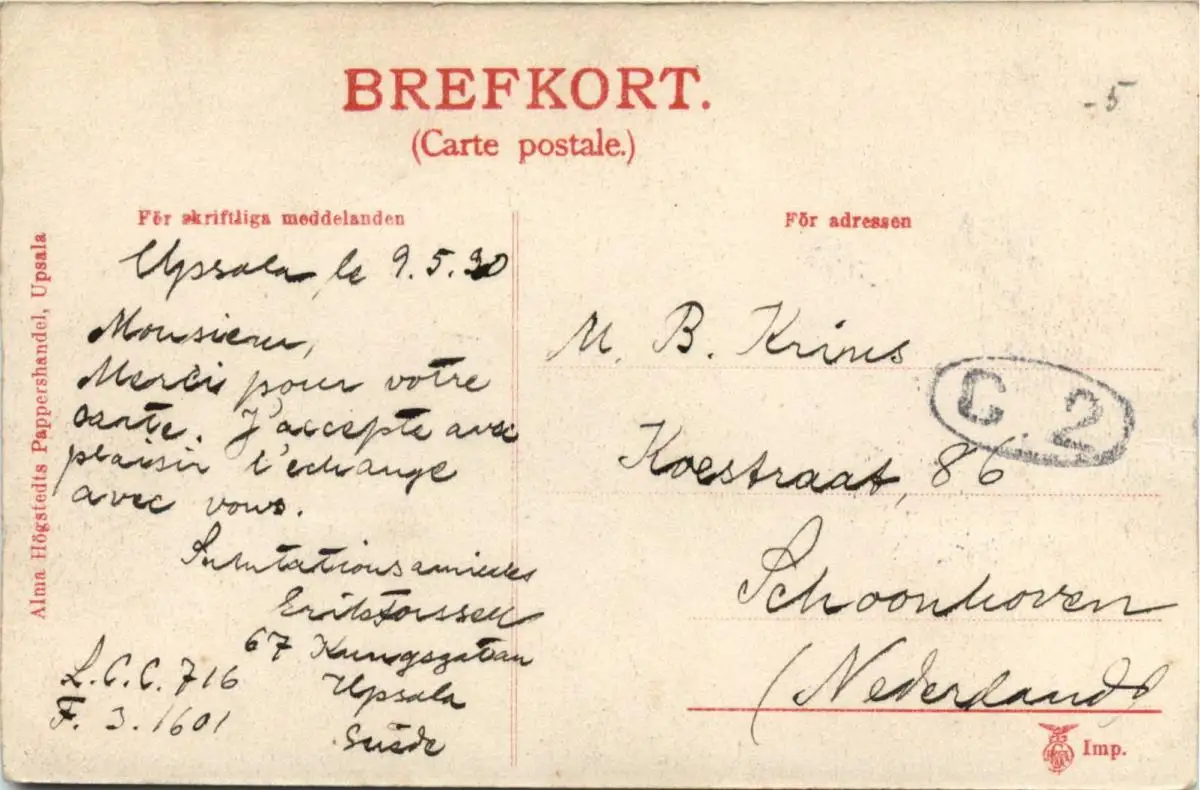 BREFKORT.
(Carte postale.)
-5
För skriftliga meddelanden
För adressen
Alma Högstedts Pappershandel, Upsala
Upsala le 9.5.
Monsieur,
Merci pour votre
carte. J'accepte avec
plaisir l'echange
avec vous.
Salutations amicales
Erik Forssell
67 Kungsgatan
Upsala
Suède
L.C.C. 716
F. 3.1601
M. B. Krins
Koestraat, 86
Schoonhoven
(Nederland)
C. 2
Imp.